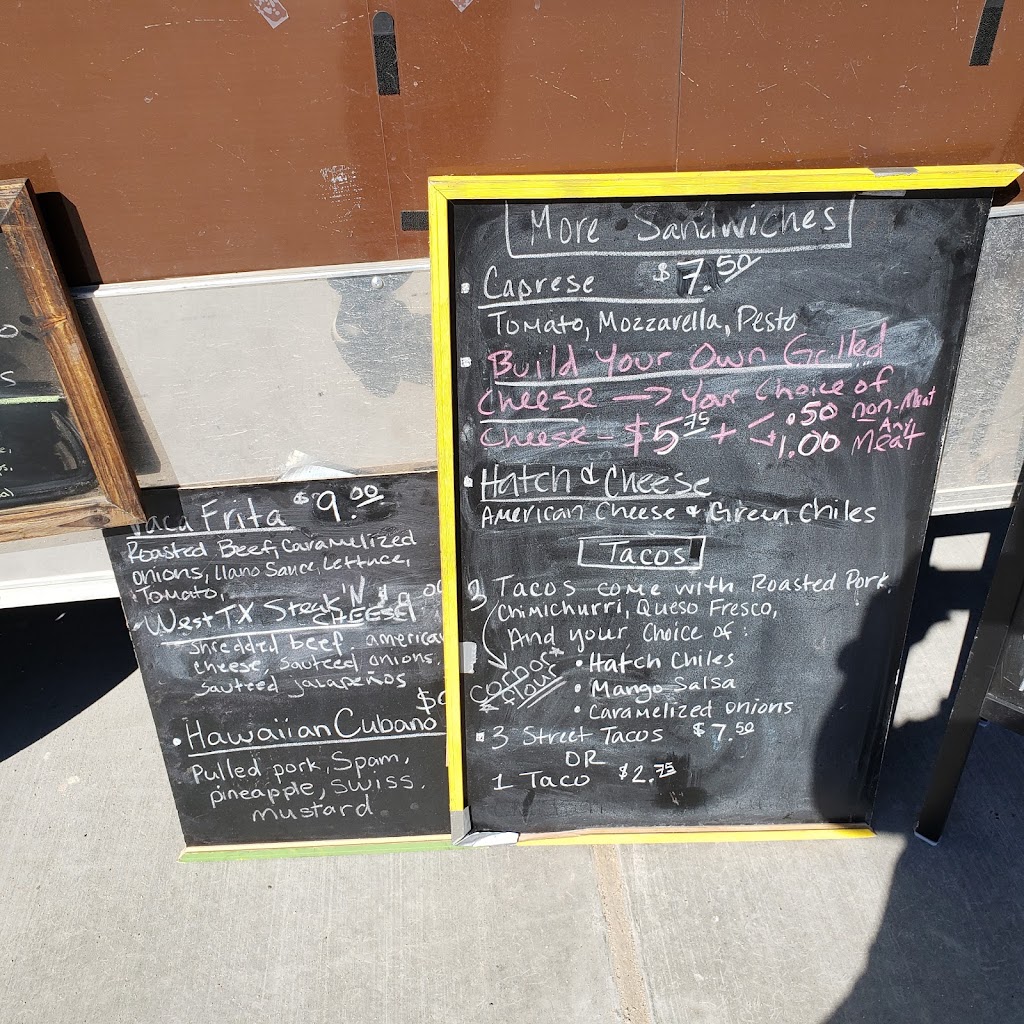 Vaca Frita $9.00
Roasted Beef, Caramelized
onions, Llano Sauce, Lettuce,
Tomato,
West TX Steak 'N'
CHEESE!
shredded beef, american
cheese, sauteed onions,
sauteed jalapeños
• Hawaiian Cubano
Pulled pork, Spam,
pineapple, swiss,
mustard
More Sandwiches
Caprese $7.50
Tomato, Mozzarella, Pesto
Build Your Own Grilled
Cheese → Your Choice of
Cheese - $5.75 + .50 non-Meat
1.00 Any Meat
Hatch & Cheese
American Cheese & Green Chiles
Tacos
3 Tacos come with Roasted Pork,
Chimichurri, Queso Fresco,
And your Choice of:
corn or
flour
• Hatch Chiles
• Mango Salsa
• Caramelized onions
3 Street Tacos $7.50
OR
1 Taco $2.75